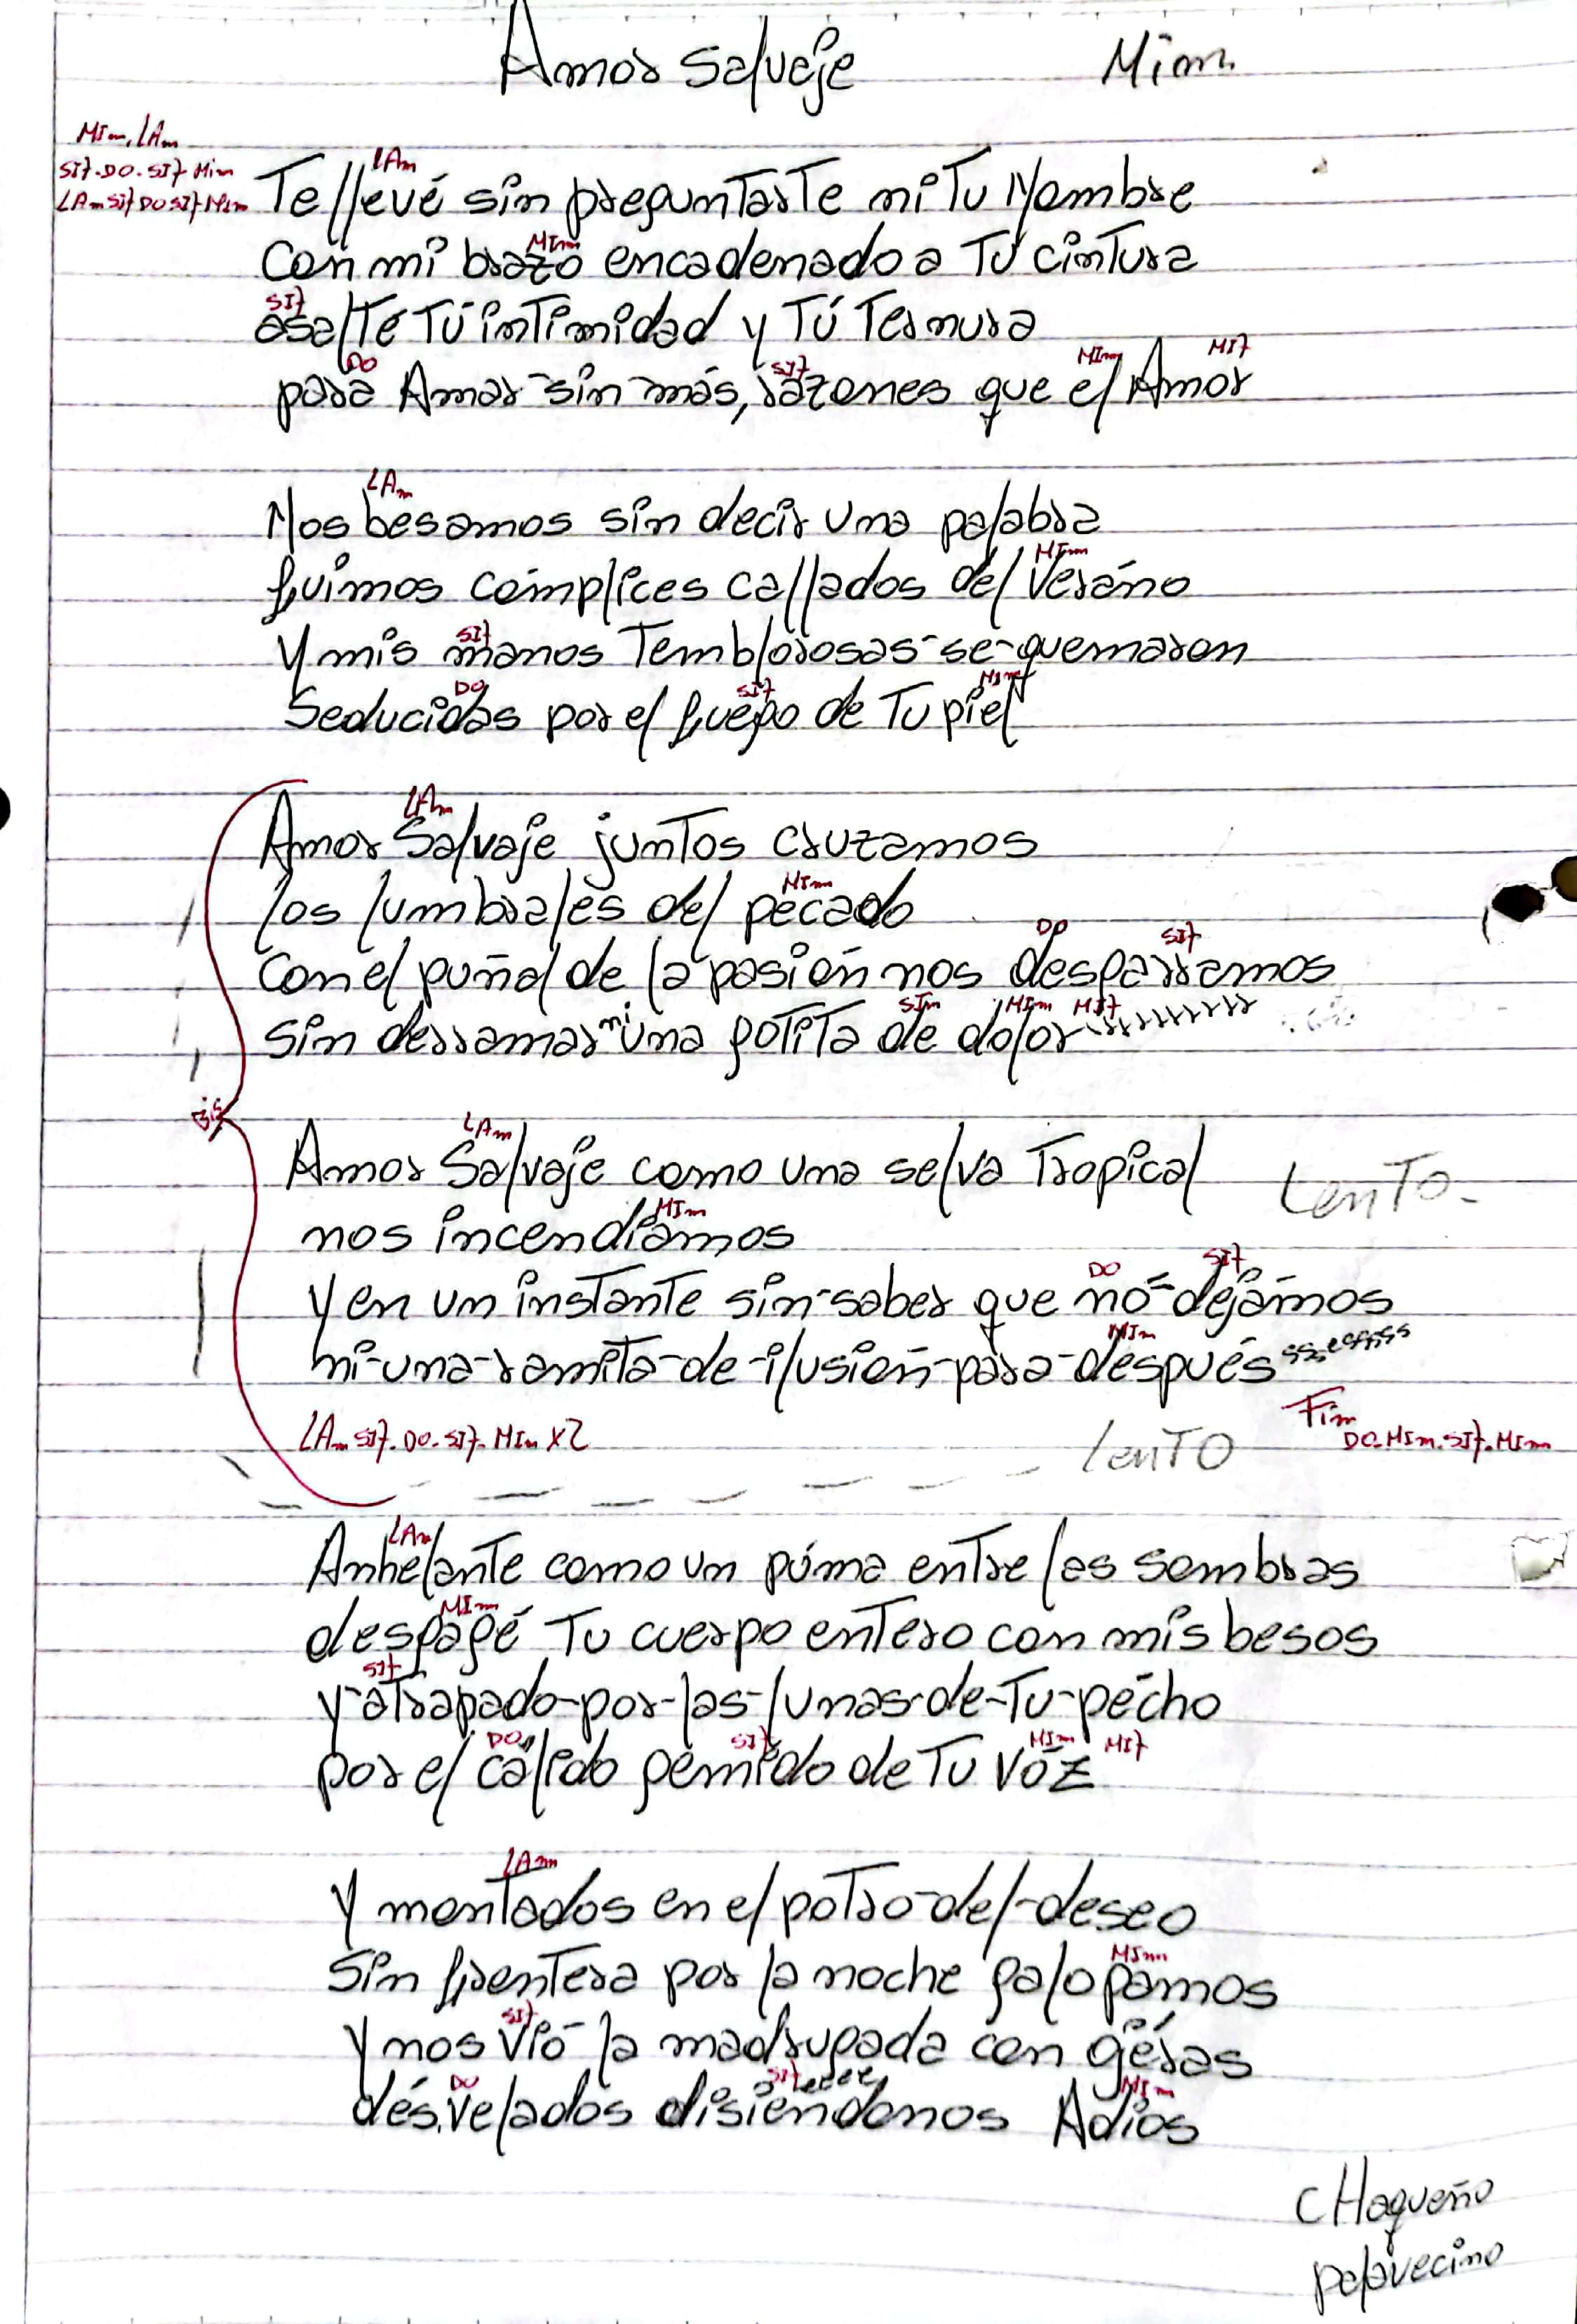 Amor Salvaje Mim.
MIm, LAm
SI7-DO-SI7-MIm
LAm SI7 DO SI7 MIm
LAm
Te llevé sin preguntarte ni Tu Nombre
MIm
Con mi brazo encadenado a Tu cintura
SI7
asalté Tú intimidad y Tú Ternura
DO SI7 MIm MI7
para Amar-sin-más, razones que el Amor
LAm
Nos besamos sin decir una palabra
MIm
fuimos cómplices callados del Veráno
SI7
Y mis manos Temblorosas-se-quemaron
DO SI7 MIm
Seducidas por el fuego de Tu piel
LAm
Amor Salvaje juntos cruzamos
MIm
los lumbrales del pecado
DO SI7
Con el puñal de la pasión nos desgarramos
SIm MIm MI7
sin derramar ni una gotita de dolor
Bis
LAm
Amor Salvaje como una selva Tropical LenTo-
MIm
nos incendiamos
DO SI7
Y en un instante sin-saber que nó-dejámos
MIm
ni-una-ramita-de-ilusión-para-después
LAm SI7-DO-SI7-MIm x2 Fin
DO-MIm-SI7-MIm
lenTO
LAm
Anhelante como un púma entre las sombras
MIm
despagé Tu cuerpo entero con mis besos
SI7
y-atrapado-por-las-lunas-de-Tu-pécho
DO SI7 MIm MI7
por el cálido gemido de Tu Vóz
LAm
Y montados en el potro-del-deseo
MIm
Sin frontera por la noche galopamos
SI7
Y nos vió la madrugada con géras
DO SI7 eeee MIm
désvelados disiéndonos Adiós
CHaqueño
palavecino